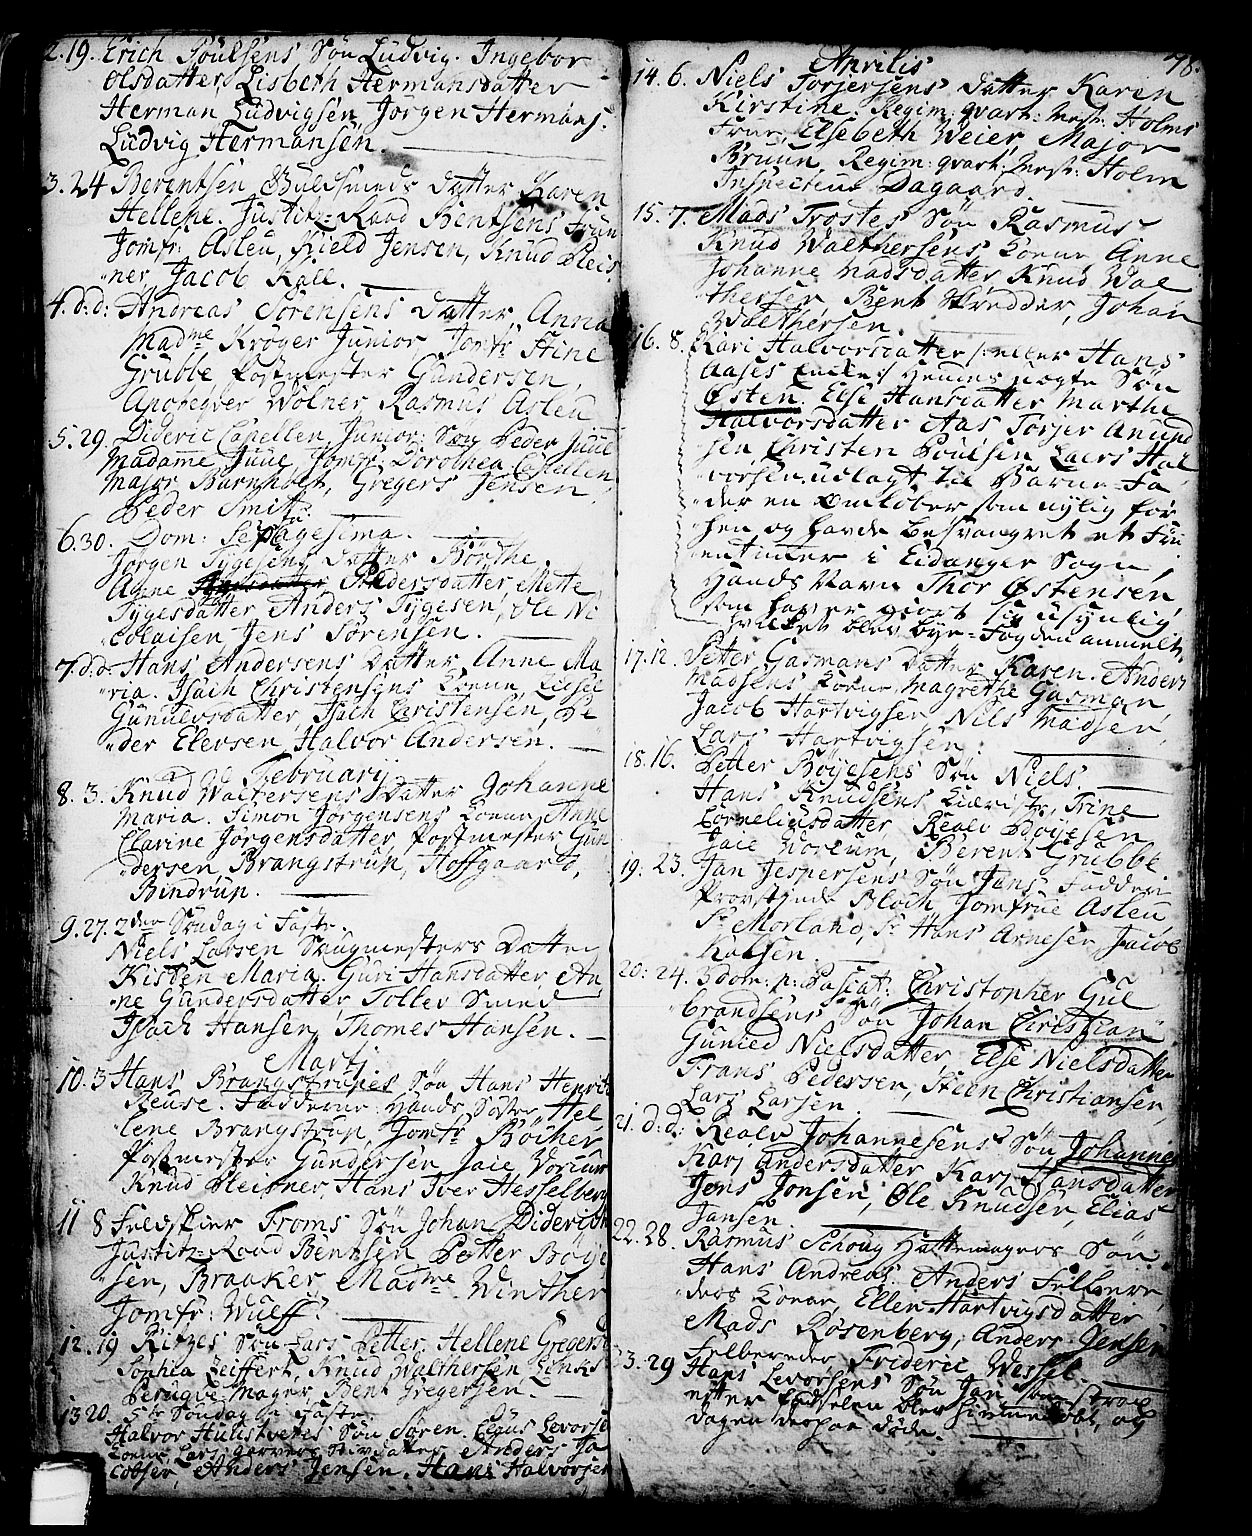 2. 19. Erich Poulsens Søn Ludvig. Ingebor
Olsdatter, Lisbeth Hermansdatter
Herman Ludvigsen Jørgen Hermans:
Ludvig Hermansen.
3. 24 Berentsen Guldsmeds datter Karen
Hellene. Justitz-Raad Bentsens Frue
Jomfr: Asleu, Kield Jensen, Knud Pleis
ner Jacob Kall.
4. d: d: Andreas Sørensens datter Anna
Madme Krøger Junior, Jomfr Stine
Grubbe, Postmester Gundersen,
Apoteqver Wolner Rasmus Asleu
5. 29. Dideric Capellen Junior: Søn Peder Juul
Madame Juul, Jomfr. Dorothea Capellen
Major Barnholt, Gregers Jensen,
Peder Smit.
6. 30. Dom: Septuagesima.
Jørgen Tygesens datter Børthe
Anne Pedersdatter, Mette
Tygesdatter Anders Tygesen, Ole Ni
colaisen Jens Sørensen.
7. d: d: Hans Andersens datter Anne Ma
ria. Isach Christensens Kone,
Gundersdatter, Isach Christensen, Pe
der Elevsen Halvor Andersen.
Februarij
8. 3. Knud Waltersens datter Johanne
Maria. Simon Jørgensens Kone, Anne
Clarine Jørgensdatter, Postmester Gun
dersen, Brangstrup, Hoffgaard,
Bindrup.
9. 27. 2den Søndag i Faste
Niels Larsen Saugmesters datter
Kisten Maria. Guri Hansdatter, An
ne Gundersdatter, Tollev Smed
Isach Hansen, Thomes Hansen.
Martj
10. 3 Hans Brangstrupes Søn Hans Henrich
Reuse. Fadderne: Hands Søster, Hel
lene Brangstrup, Jomfr Böcher
Postmester Gundersen Jaie Worum
Knud Pleisner, Hans Iver Hesselberg
11 8 Feldskier Froms Søn Johan Diderich
Justitz-Raad Bentsen Petter Bøye
sen, Braaker Madme Winther
Jomfr: Wulff.
12. 19 Ritzes Søn Lars Petter, Hellene Gregers
Sophia Zeiffert, Knud Walthersen,
Peruqve mager, Bent Gregersen.
13 20. 5te Søndag i Faste
Halvor Hulistvets Søn Søren. Claus Levorse
Kone, Lars datter Anders Ja
cobsen, Anders Jensen, Hans Halvorsen
78.
Aprilis
14. 6. Niels Torjersens datter Karen
Kirstine. Regim: qvart: Mest: Holms
Frue, Elsebeth Weier, Major
Bruun, Regim: qvart: Mest: Holm
Inspecteur Dagaard.
15. 7. Mads Trostes Søn Rasmus
Knud Walthersens Kone Anne
Johanne Madsdatter Knud Wal
thersen, Bent Johan
Walthersen.
16. 8. Kari Halvorsdatter /: eller Hans
Aases Enke :/ hendes uægte Søn
Østen. Else Hansdatter Marthe
Halvorsdatter Aas Torjer Anund
sen Christen Poulsen Laers Hal
vorsen. udlagt til Barne-Fa
der en Omløber som nylig for
hen og havde besvangret et Fru
entimer i Eidanger Sogn,
Hands Navn Thor Østensen,
som haver giort sig usynlig
hvilket blev Bye-Fogden anmelt.
17. 12. Petter Gasmans datter Karen. Anders
Madsens Kone, Magrethe Gasman
Jacob Hartvigsen, Niels Madsen,
Lars Hartvigsen.
18. 16. Petter Bøyesens Søn Niels,
Hans Knudsens Kiæriste, Trine
Corneliusdatter, Realv Bøyesen
Jaie Worum, Berent Grubbe
19. 23. Jan Jespersens Søn Jens. Faddere
Provstinde Bloch Jomfrue Asleu
Sr Morland, Sr Hans Arnesen, Jacob
20. 24. 3 dom: p: Pascat: Christopher Gul
brandsens Søn Johan Christian
Gunied Nielsdatter Else Nielsdatter
Frans Pedersen, Steen Christiansen,
Lars Larsen.
21. d: d: Realv Johannesens Søn Johannes
Karj Andersdatter Karj Hansdatter
Jens Jonsen, Ole Knudsen, Elias
Jansen.
22. 28. Rasmus Schoug Hattemagers Søn
Hans Andreas. Anders Felbere
ders Kone, Ellen Hartvigsdatter
Mads Rosenberg, Anders Jensen
Felbereder, Frideric Wessel.
23. 29 Hans Levorsens Søn Jan som strax
efter fødselen blev hiemmedøbt, og
dagen derpaa døde.